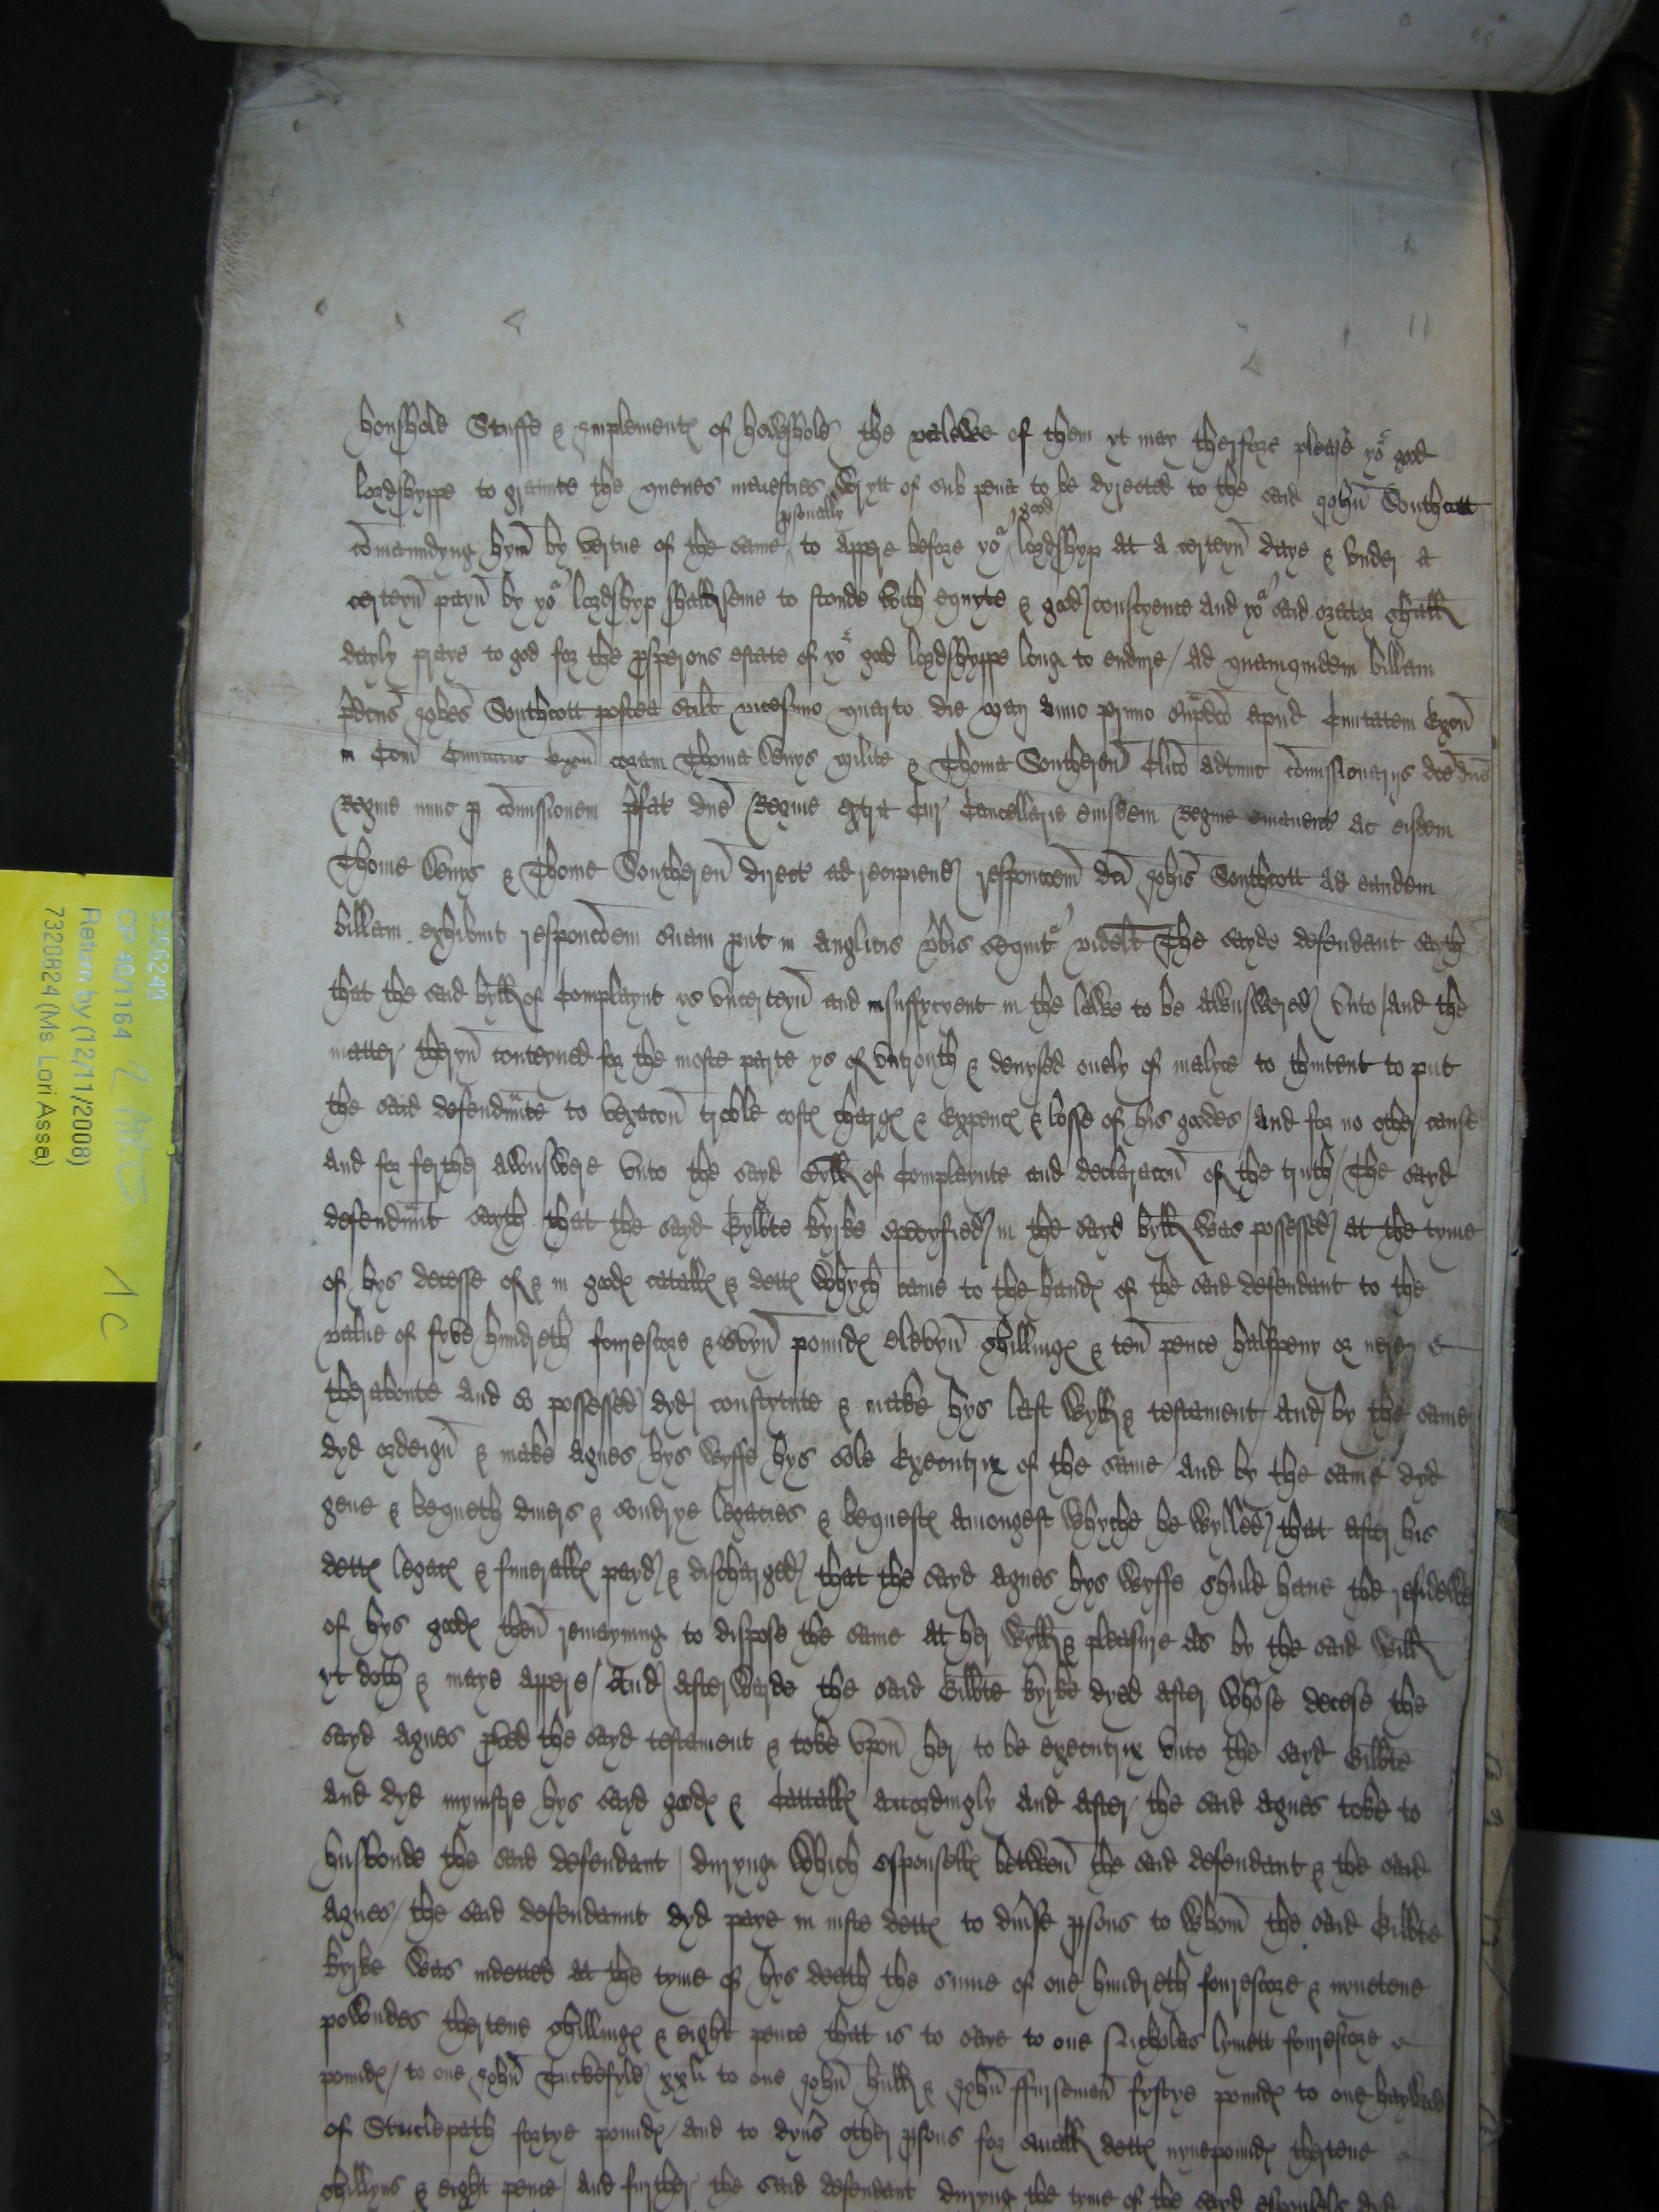 houshold Stuffe & Implementes of howshold the valewe of them yt may therfore please yor good
lordshyppe to graunte the quenes maiesties wrytt of sub pena to be dyrected to the said John Southcott
comaundyng hym by vertue of the same personally to appere before yor good lordshyp at a certeyn daye & under a
certeyn payn by yor lordshyp shall seme to stonde with equyte & good conscyence and yor said orator shall
dayly praye to god for the prosperous estate of yor good lordshyppe long to endure / Ad quamquidem billam
predcus Johes Southcott postea scilt vicesimo quarto die Maij Anno primo supadco apud Civitatem Exon
in Com Civitatis Exon coram Thoma Denys Milite & Thoma Southeron Clico adtunc comissionarijs dce dne
Regine nunc per comissionem prefat dne Regine extra Cur Cancellarie eiusdem Regine emanent ac eisdem
Thome Denys & Thome Southeron direct ad recipiend responcoem dci Johis Southcott ad eandem
billam exhibuit responcoem suam prout in anglicis verbis sequitr videlt The sayde defendant sayth
that the said byll of Complaynt ys uncerteyn and insuffycyent in the lawe to be awnswered unto / and the
matter theryn conteyned for the moste parte ys of untrouth & devysed onely of malyce to thintent to put
the said defendaunte to vexacon troble costes charges & expences & losse of his goodes / and for no other cause
and for ferther awnswere unto the sayd Byll of Complaynte and declaracon of the truth / The sayd
defendaunt sayth that the sayd Gylbte Kyrke specyfied in the sayd byll was possessed at the tyme
of hys decesse of & in goodes catalles & dettes whych came to the handes of the said defendant to the
value of fyve hundreth fourescore & sevyn poundes elevyn shillinges & ten pence halfpeny or nere
theraboute and so possessed dyd constytute & make hys last wyll & testament / And by the same
dyd ordeign & make Agnes hys wyffe hys sole Executrix of the same And by the same dyd
geue & bequeth diuers & sondrye legacies & bequestes amongest whyche he wylled that after his
dettes legaces & funeralles payd & discharged that the sayd Agnes hys wyffe shuld haue the residewe
of hys goodes then remaynyng to dispose the same at her wyll & pleasure As by the said will
yt doth & maye appere / And afterwarde the said Gilbte Kyrke dyed after whose decese the
sayd Agnes proved the sayd testament & toke upon her to be executrix unto the sayd Gilbte
and dyd mynistre hys sayd goodes & Cattalles accordingly and after the said Agnes toke to
husbonde the said defendant / duryng which esponselles betwen the said defendant & the said
Agnes / the said defendaunt dyd paye in iuste dettes to diuse persons to whom the said Gilbte
Kyrke was indetted at the tyme of hys death the sume of one hundreth fourescore & nynetene
powndes thertene shillinges & eight pence that is to saye to one Nicholas lymett fourescore
poundes / to one John Tuckefyld xxli to one John hull & John ffurseman fyftye poundes to one haywood
of Sticlepath fortye poundes / and to dyus other persons for small dettes nyne poundes thertene
shillyns & eight pence / and further the said defendant duryng the tyme of the sayd espousels dyd
5366249
CP 40/1164
Return by (12/11/2008)
7320824 (Ms. Lori Asse)
1 C